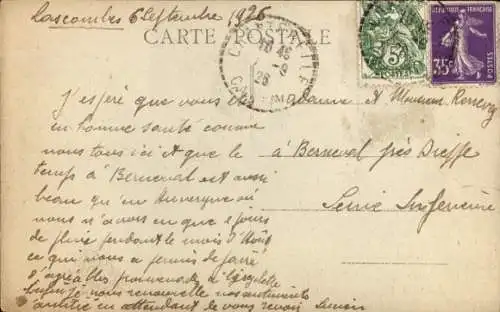 Lascombes 6 Septembre 1926
CARTE POSTALE
5c
35c
POSTES
J'espère que vous êtes
en bonne santé comme
nous tous ici et que le
temps à Berneval est aussi
beau qu'en Auvergne où
nous n'avons eu que jours
de pluie pendant le mois d'Août
ce qui nous a permis de faire
d'agréables promenades à bicyclette
nous renouvelle nos
amitiés en attendant de vous revoir Lucien
Madame et Monsieur
à Berneval près Dieppe
Seine Inférieure